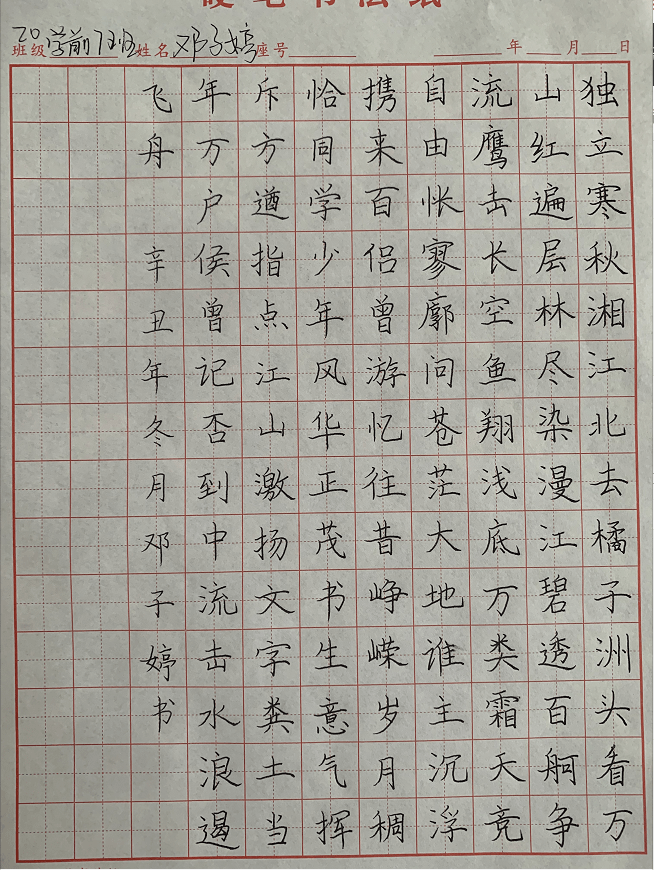 硬笔书法纸
班级 20学前7班 姓名 邓子婷 座号 年 月 日
独立寒秋湘江北去橘子洲头看万
山红遍层林尽染漫江碧透百舸争
流鹰击长空鱼翔浅底万类霜天竞
自由怅寥廓问苍茫大地谁主沉浮
携来百侣曾游忆往昔峥嵘岁月稠
恰同学少年风华正茂书生意气挥
斥方遒指点江山激扬文字粪土当
年万户侯曾记否到中流击水浪遏
飞舟 辛丑年冬月邓子婷书